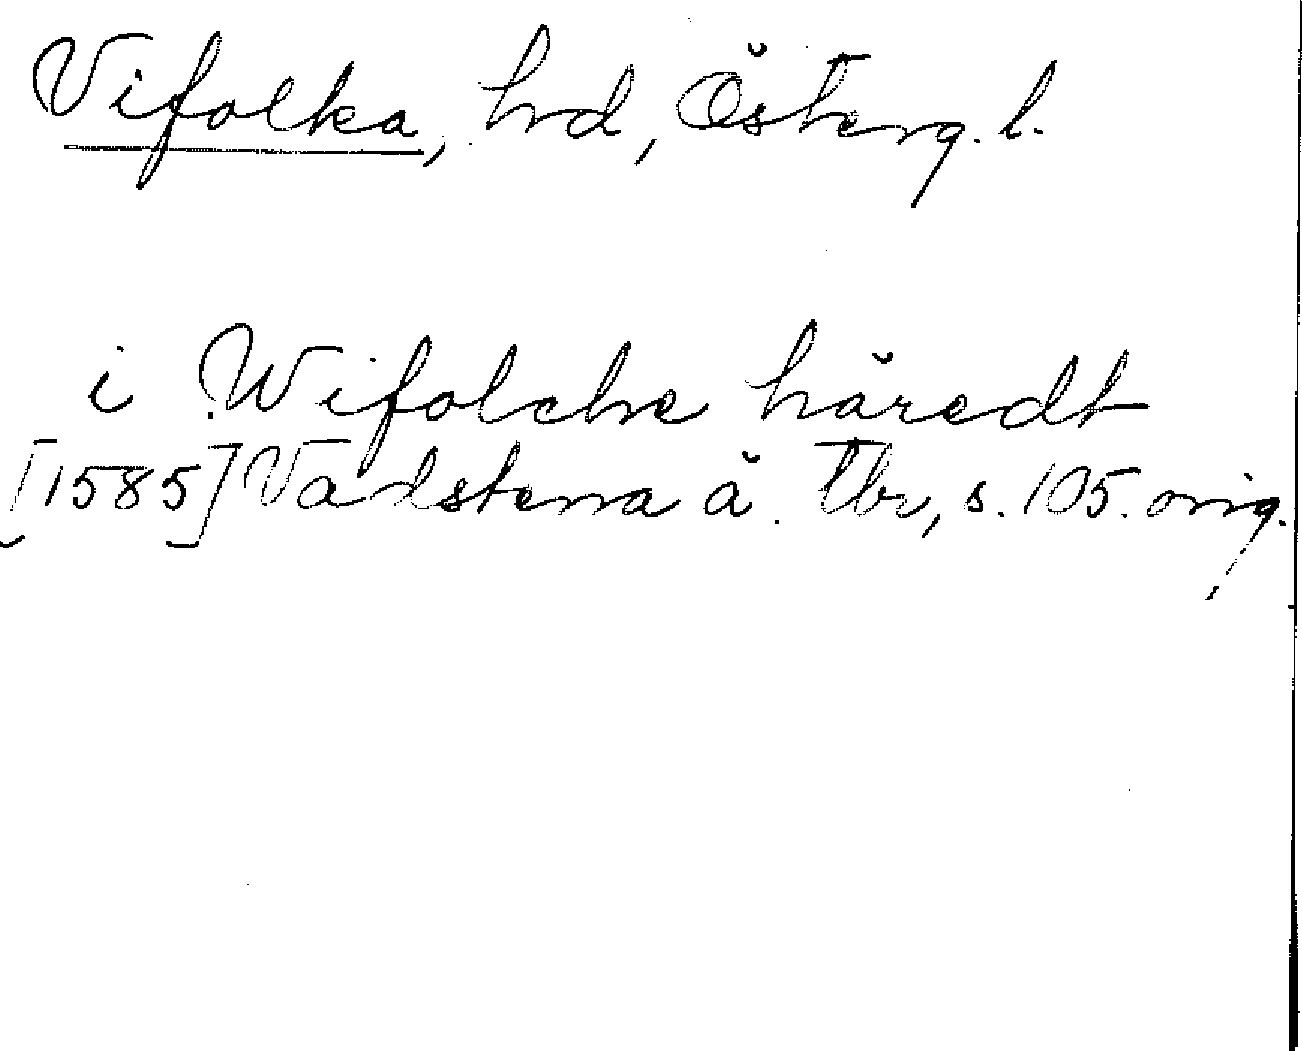 Vifolka, hrd, Österg. l.
i Wifolche häredt
[1585] Vadstena ä. Tbr, s. 105. orig.